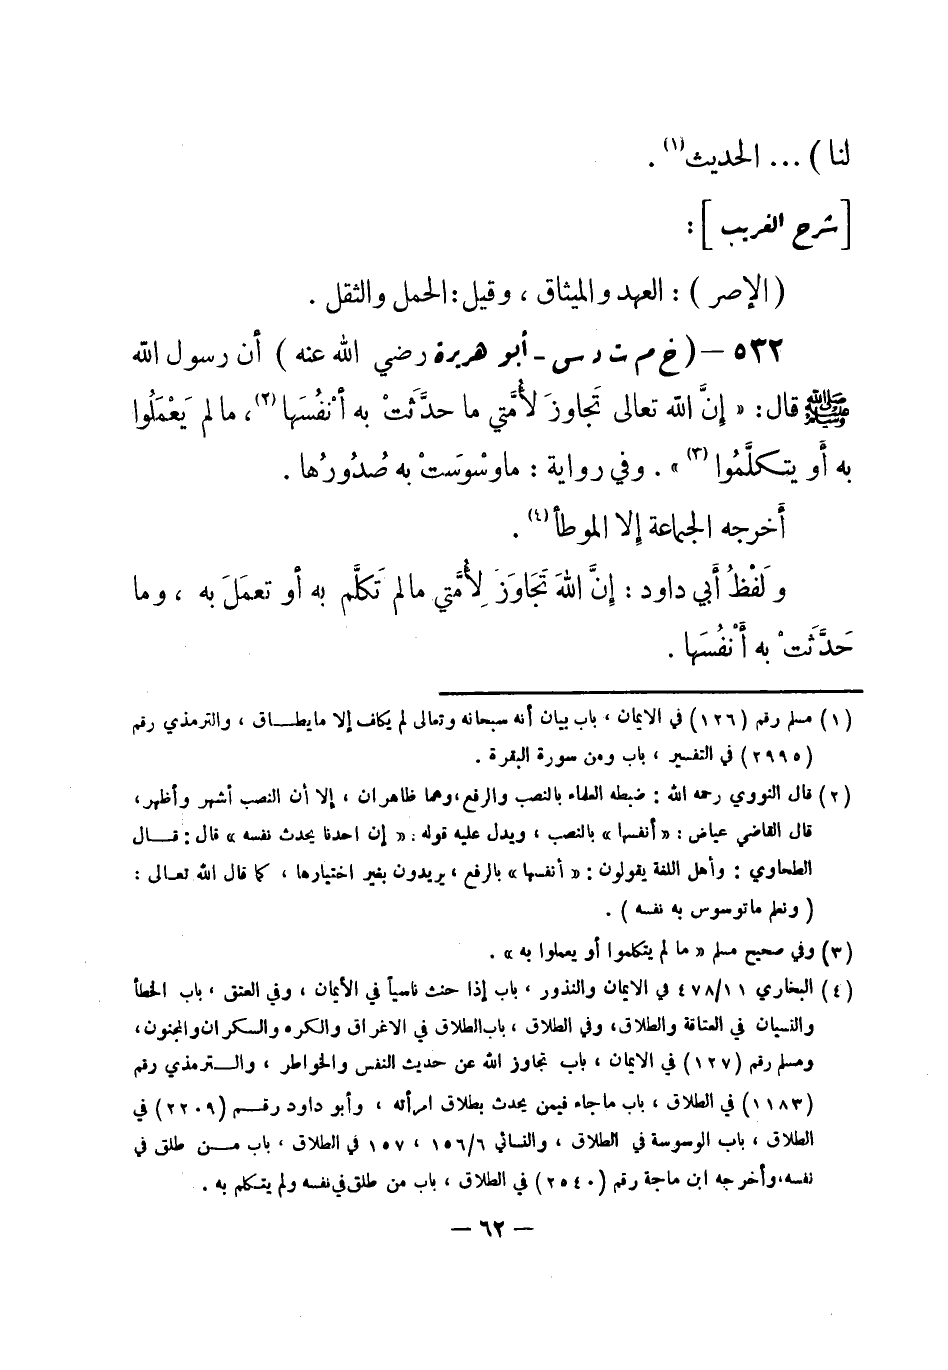 لنا ) ... الحديث(١) .
[ شرح الغريب ] :
( الإصر ) : العهد والميثاق ، وقيل : الحمل والثقل .
٥٣٢ – ( خ م ت د س ـ أبو هريرة رضي الله عنه ) أن رسول الله
ﷺ قال : « إنَّ الله تعالى تَجاوز لأُمَّتي ما حدَّثَتْ به أنْفُسَها(٢)، ما لم يَعْمَلُوا
به أو يتكلَّمُوا (٣) » . وفي رواية : ماوسْوَستْ به صُدُورُها .
أخرجه الجماعة إلا الموطأ(٤) .
ولَفْظُ أبي داود : إنَّ اللهَ تَجَاوَزَ لِأُمَّتي مالم تَكلَّم به أو تعمَلَ به ، وما
حَدَّثَتْ به أنْفُسَها .
(١) مسلم رقم (١٢٦) في الايمان ، باب بيان أنه سبحانه وتعالى لم يكلف إلا ما يطـــاق ، والترمذي رقم
(٢٩٩٥) في التفسير ، باب ومن سورة البقرة .
(٢) قال النووي رحمه الله : ضبطه العلماء بالنصب والرفع،وهما ظاهران ، إلا أن النصب أشهر وأظهر،
قال القاضي عياض : « أنفسها » بالنصب ، ويدل عليه قوله : « إن احدنا يحدث نفسه » قال : قـــال
الطحاوي : وأهل اللغة يقولون : « أنفسها » بالرفع ، يريدون بغير اختيارها ، كما قال الله تعـالى :
( ونعلم ماتوسوس به نفسه ) .
(٣) وفي صحيح مسلم « ما لم يتكلموا أو يعملوا به » .
(٤) البخاري ٤٧٨/١١ في الايمان والنذور ، باب إذا حنث ناسياً في الأيمان ، وفي العتق ، باب الخطأ
والنسيان في العتاقة والطلاق، وفي الطلاق ، باب الطلاق في الاغراق والكره والسكران والمجنون ،
ومسلم رقم (١٢٧) في الايمان ، باب تجاوز الله عن حديث النفس والخواطر ، والـــترمذي رقم
(١١٨٣) في الطلاق ، باب ماجاء فيمن يحدث بطلاق امرأته ، وأبو داود رقـــم (٢٢٠٩) في
الطلاق ، باب الوسوسة في الطلاق ، والنسائي ١٥٦/٦ ، ١٥٧ في الطلاق ، باب مـــن طلق في
نفسه،وأخرجه ابن ماجة رقم (٢٥٤٠) في الطلاق ، باب من طلق في نفسه ولم يتكلم به .
— ٦٢ —